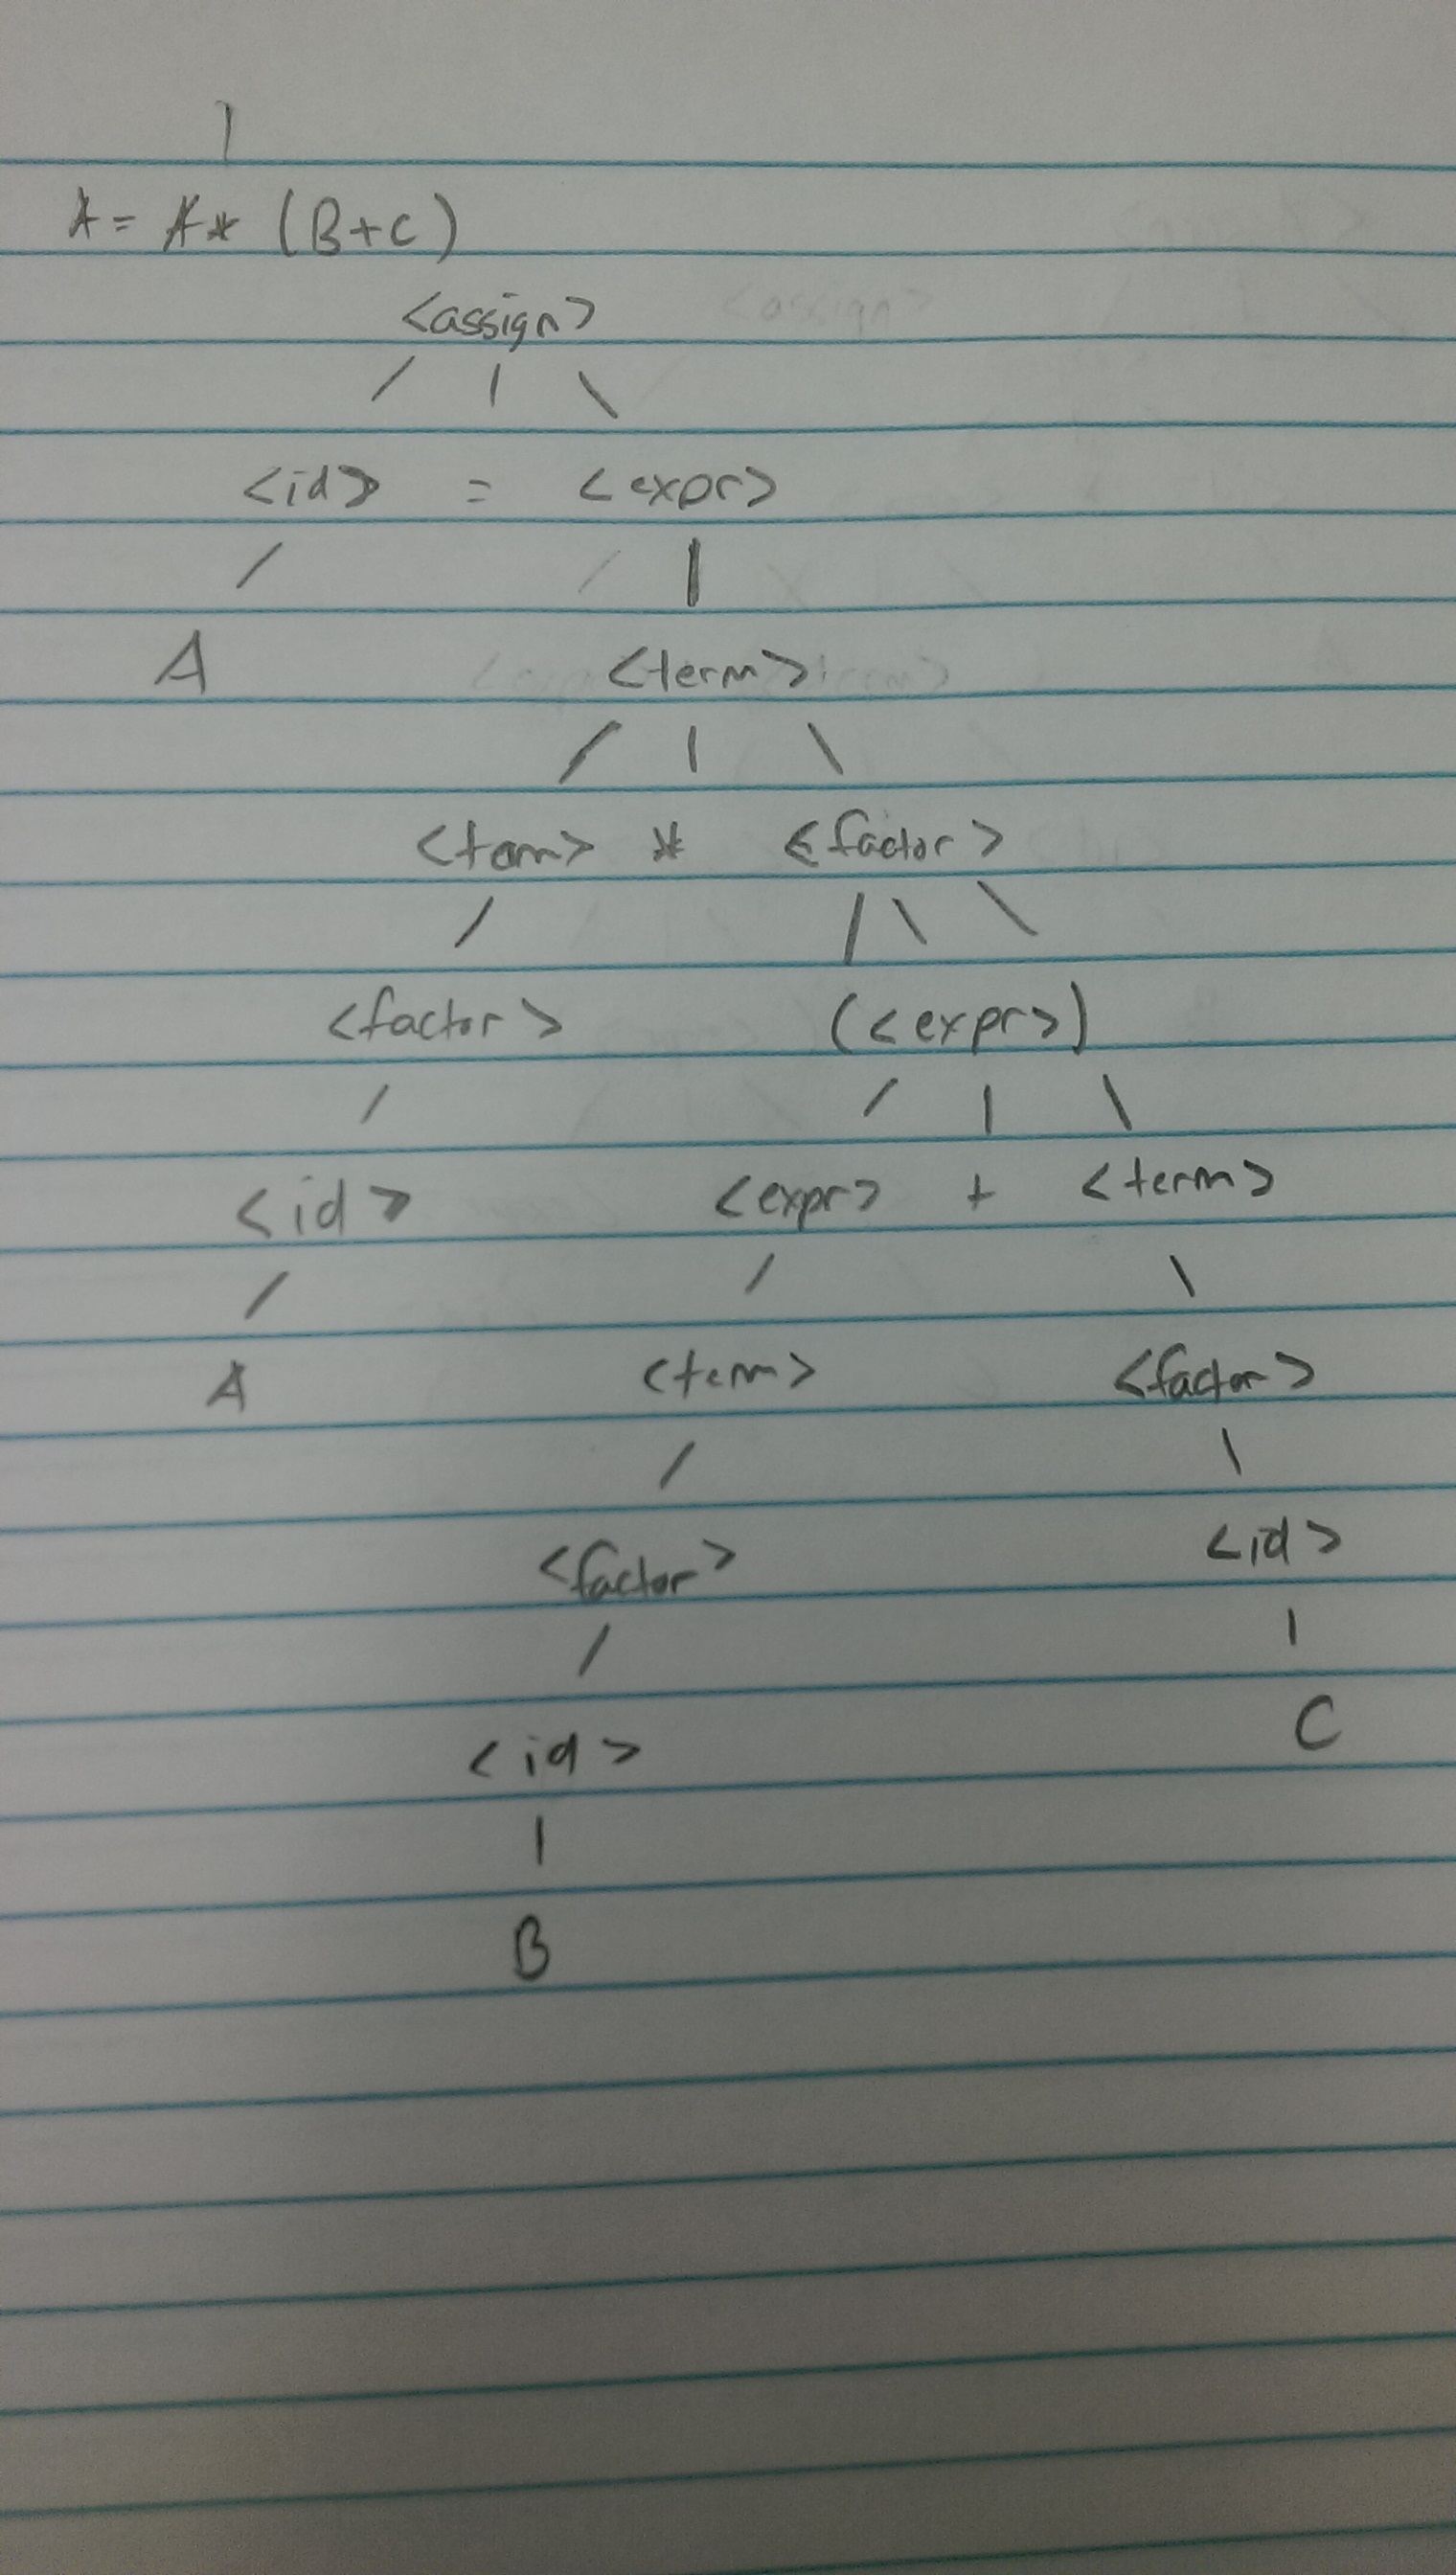 1
A = A * (B+C)
<assign>
/ | \
<id> = <expr>
/ |
A <term>
/ | \
<term> * <factor>
/ / \ \
<factor> (<expr>)
/ / | \
<id> <expr> + <term>
/ / \
A <term> <factor>
/ \
<factor> <id>
/ |
<id> C
|
B